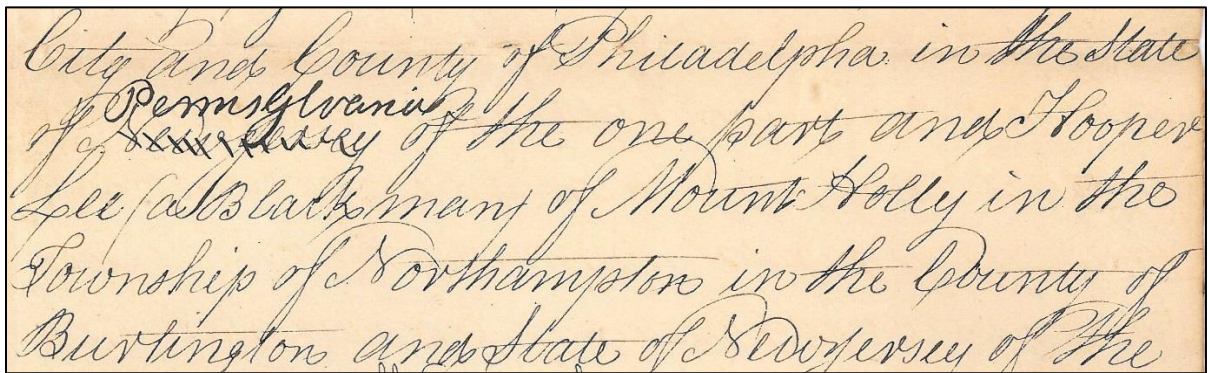 City and County of Philadelphia in the State
Pennsylvania
of New Jersey of the one part and Hooper
Lee (a Black man) of Mount Holly in the
Township of Northampton in the County of
Burlington and State of New Jersey of the